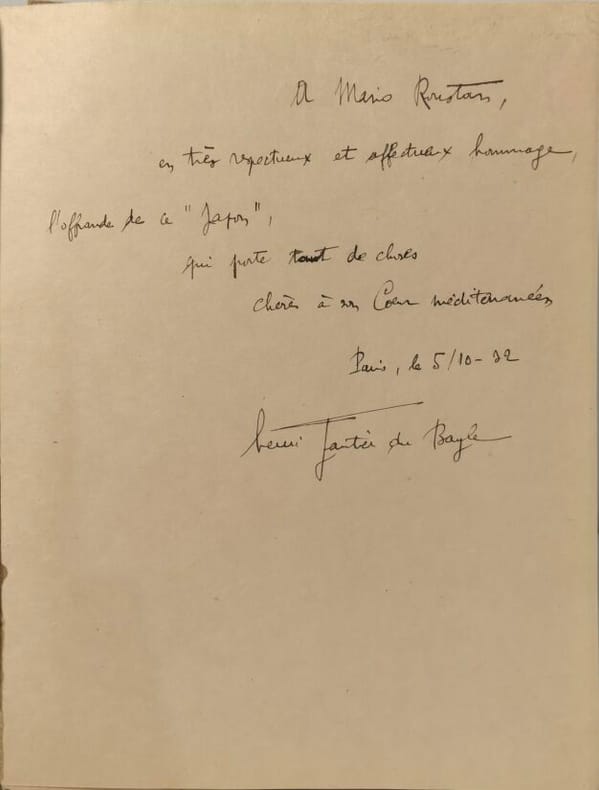 A Mario Roustan,
en très respectueux et affectueux hommage,
l'offrande de ce "Japon",
qui porte tant de choses
chères à son Cœur méditerranéen
Paris, le 5/10-32
henri du Bayle